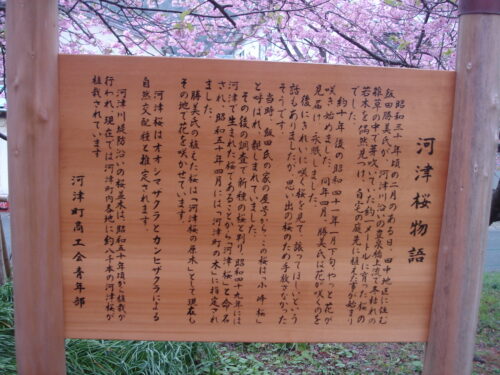 河津桜物語
昭和三十年頃の二月のある日、田中地区に住む
飯田勝美氏が、河津川沿いの豊泉橋上流の冬枯れの
雑草の中で芽吹いていた約一メートルに育った桜の
若木を偶然見つけ、自宅の庭先に植えた事が始まり
でした。
約十年後の昭和四十一年一月下旬やっと花が
咲き始めました。同年四月、勝美氏は花が咲くのを
見届け、永眠しました。
後にきれいに咲く桜を見て、譲ってほしいという
話もありましたが、思い出の桜のため手放さなかった
そうです。
当時、飯田氏の家の屋号からこの桜は「小峰桜」
と呼ばれ、親しまれていました。
その後の調査で新種の桜と判り、昭和四十九年には
河津で生まれた桜であることから「河津桜」と命名
され、昭和五十年四月には「河津町の木」に指定され
ました。
勝美氏の植えた桜は「河津桜の原木」として現在も
その地で花を咲かせています。
河津桜はオオシマザクラとカンヒザクラによる
自然交配種と推定されます。
河津川堤防沿いの桜並木は、昭和五十年頃から植栽が
行われ、現在では河津町内各地に約八千本の河津桜が
植栽されています。
河津町商工会青年部